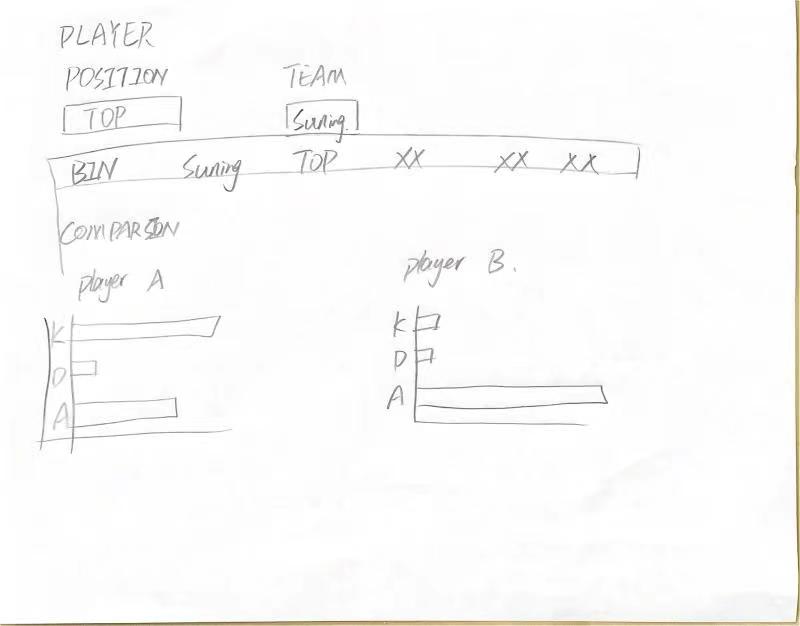 PLAYER
POSITION TEAM
TOP Suning.
BIN Suning TOP XX XX XX
COMPARSION
player A player B.
K K
D D
A A